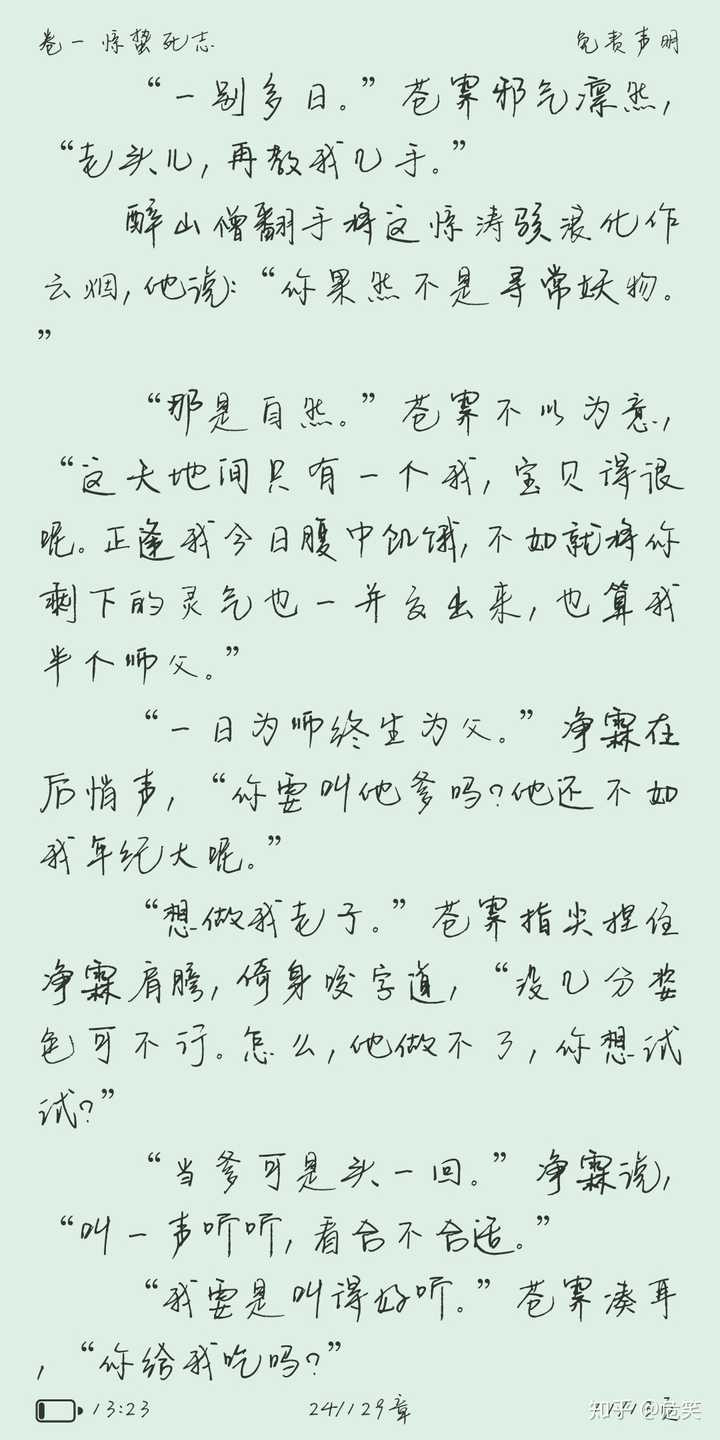 卷一 惊蛰死志 免责声明
“一别多日。”苍霁邪气凛然，
“老头儿，再教我几手。”
醉山僧翻手将这惊涛骇浪化作
云烟，他说：“你果然不是寻常妖物。
”
“那是自然。”苍霁不以为意，
“这天地间只有一个我，宝贝得很
呢。正逢我今日腹中饥饿，不如就将你
剩下的灵气也一并交出来，也算我
半个师父。”
“一日为师终生为父。”净霖在
后悄声，“你要叫他爹吗？他还不如
我年纪大呢。”
“想做我老子。”苍霁指尖捏住
净霖肩膀，倚身咬字道，“没几分姿
色可不行。怎么，他做不了，你想试
试？”
“当爹可是头一回。”净霖说，
“叫一声听听，看合不合适。”
“我要是叫得好听。”苍霁凑耳
，“你给我吃吗？”
13:23 24/129章
知乎 @危笑